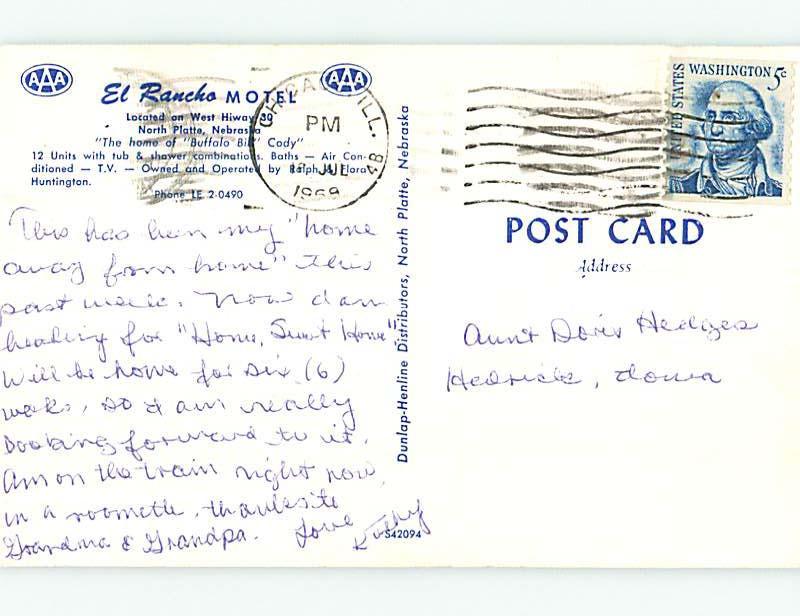 AAA
El Rancho MOTEL
AAA
Located on West Hiway 30
North Platte, Nebraska
"The home of "Buffalo Bill" Cody"
12 Units with tub & shower combinations. Baths — Air Con-
ditioned — T.V. — Owned and Operated by Ralph & Flora
Huntington.
Phone LE 2-0490
CHICAGO, ILL.
PM
JUL
1969
4B
This has been my "home
away from home" this
past week. Now I am
heading for "Home, Sweet Home".
Will be home for six (6)
weeks, so I am really
looking forward to it.
Am on the train right now,
in a roomette, thanks to
Grandma & Grandpa. Love
Kathy
S42094
Dunlap-Henline Distributors, North Platte, Nebraska
UNITED STATES
WASHINGTON 5c
POST CARD
Address
Aunt Doris Hedges
Hedrick, Iowa